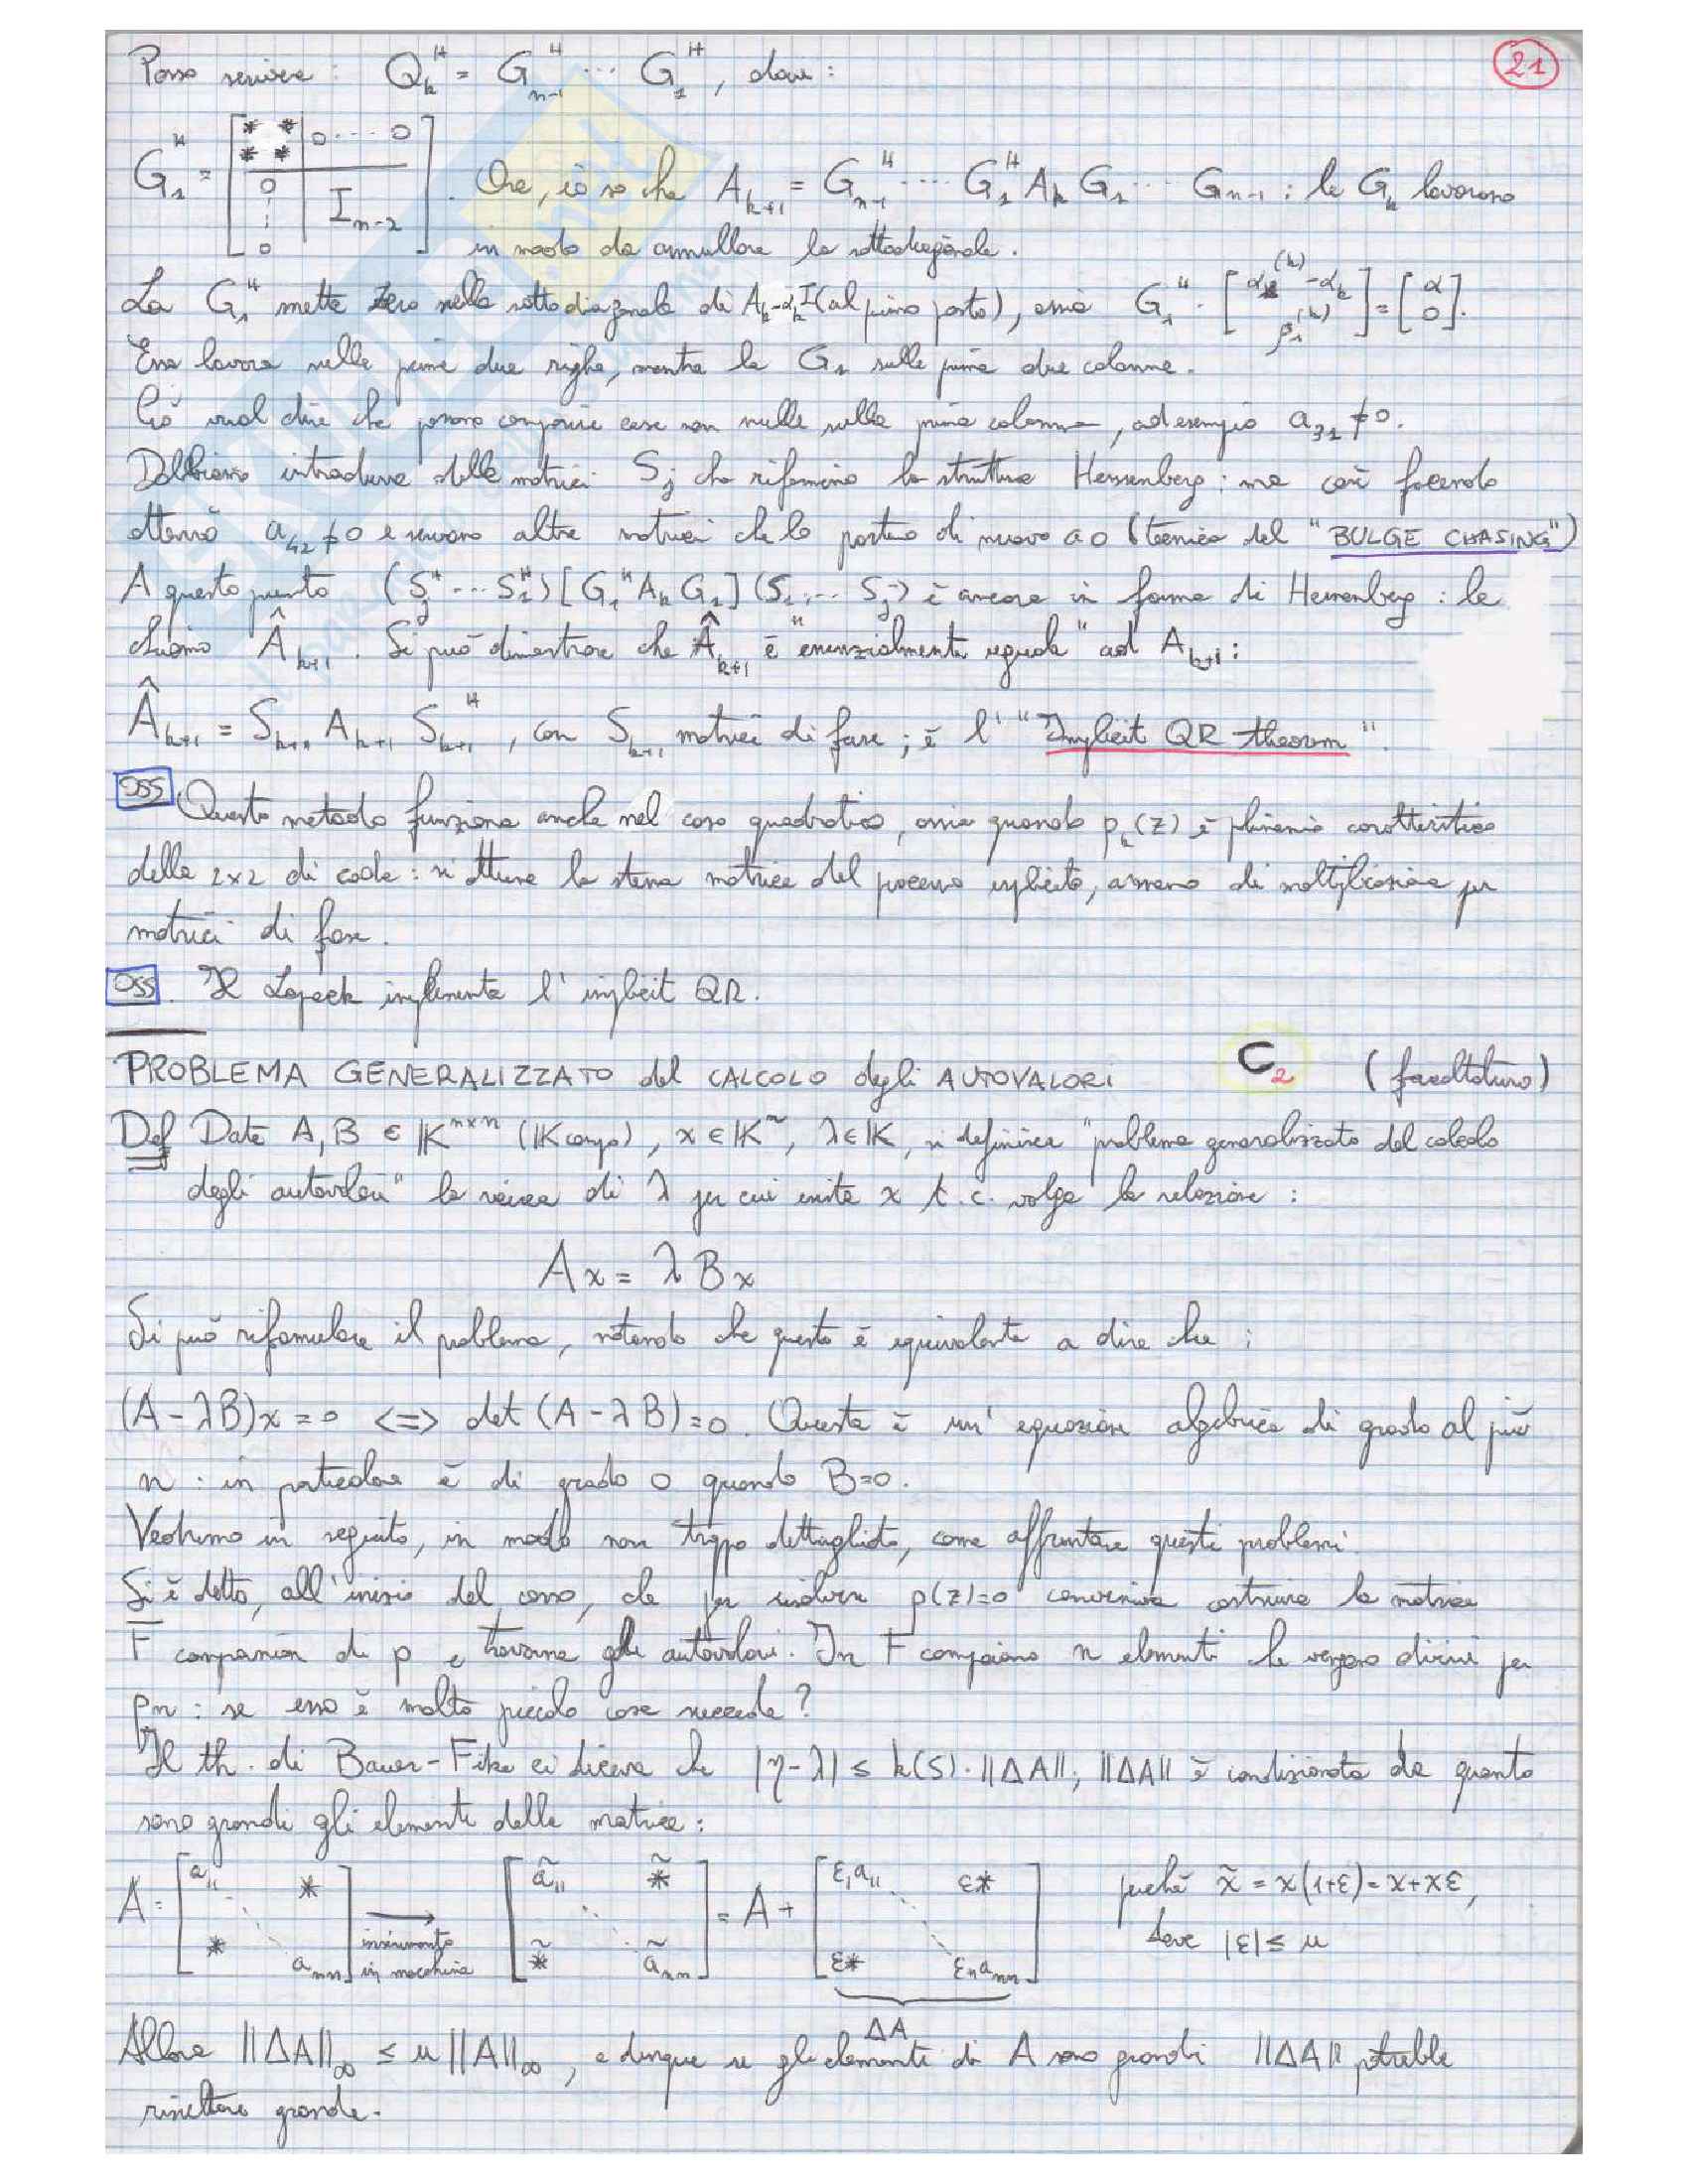 21
Posso scrivere : Q_k^H = G_{n-1}^H ... G_1^H , dove :
G_1^H = [ * * 0 ... 0 ; * * ; 0 ⋮ 0 I_{n-2} ] . Ora, io so che A_{k+1} = G_{n-1}^H ... G_1^H A_k G_1 ... G_{n-1} : le G_k lavorano
in modo da annullare la sottodiagonale.
La G_1^H mette zero nella sottodiagonale di A_k-α_k I (al primo posto), ossia G_1^H · [ α_1^{(k)} - α_k ; β_1^{(k)} ] = [ α ; 0 ].
Essa lavora nelle prime due righe, mentre la G_1 sulle prime due colonne.
Ciò vuol dire che possono comparire cose non nulle nella prima colonna, ad esempio a_{31} ≠ 0.
Dobbiamo introdurre delle matrici S_j che riformino la struttura Hessenberg ; ma così facendo
otterrò a_{42} ≠ 0 e servono altre matrici che lo portino di nuovo a 0 (tecnica del "BULGE CHASING")
A questo punto (S_j^H ... S_1^H) [G_1^H A_k G_1] (S_1 ... S_j) è ancora in forma di Hessenberg : la
chiamo Â_{k+1} . Si può dimostrare che Â_{k+1} è "essenzialmente uguale" ad A_{k+1} :
Â_{k+1} = S_{k+1} A_{k+1} S_{k+1}^H , con S_{k+1} matrici di fase ; è l' "Implicit QR theorem".
OSS. Questo metodo funziona anche nel caso quadratico, ossia quando p_k(z) è polinomio caratteristico
della 2x2 di coda : si ottiene la stessa matrice del processo esplicito, a meno di moltiplicazione per
matrici di fase.
OSS. Il Lapack implementa l' implicit QR.
PROBLEMA GENERALIZZATO del CALCOLO degli AUTOVALORI C_2 (facoltativo)
Def Date A, B ∈ K^{n×n} (K campo), x ∈ K^n, λ ∈ K, si definisce "problema generalizzato del calcolo
degli autovalori" la ricerca di λ per cui esiste x t.c. valga la relazione :
Ax = λBx
Si può riformulare il problema, notando che questo è equivalente a dire che :
(A - λB)x = 0 <=> det (A - λB) = 0. Questa è un' equazione algebrica di grado al più
n : in particolare è di grado 0 quando B=0.
Vedremo in seguito, in modo non troppo dettagliato, come affrontare questi problemi.
Si è detto, all'inizio del corso, che per risolvere p(z)=0 conveniva costruire la matrice
F companion di p e trovarne gli autovalori. In F compaiono n elementi che vengono divisi per
p_n : se esso è molto piccolo cosa succede?
Il th. di Bauer-Fike ci diceva che |η-λ| ≤ k(S)·||ΔA||; ||ΔA|| è condizionata da quanto
sono grandi gli elementi della matrice :
A = [ a_{11} * ; * a_{nn} ] → inserimento in macchina [ ã_{11} *~ ; *~ ã_{nn} ] = A + [ ε_1a_{11} ε* ; ε* ε_na_{nn} ] perché x̃ = x(1+ε) = x + xε,
dove |ε| ≤ u
ΔA
Allora ||ΔA||_∞ ≤ u||A||_∞ , e dunque se gli elementi di A sono grandi ||ΔA|| potrebbe
risultare grande.